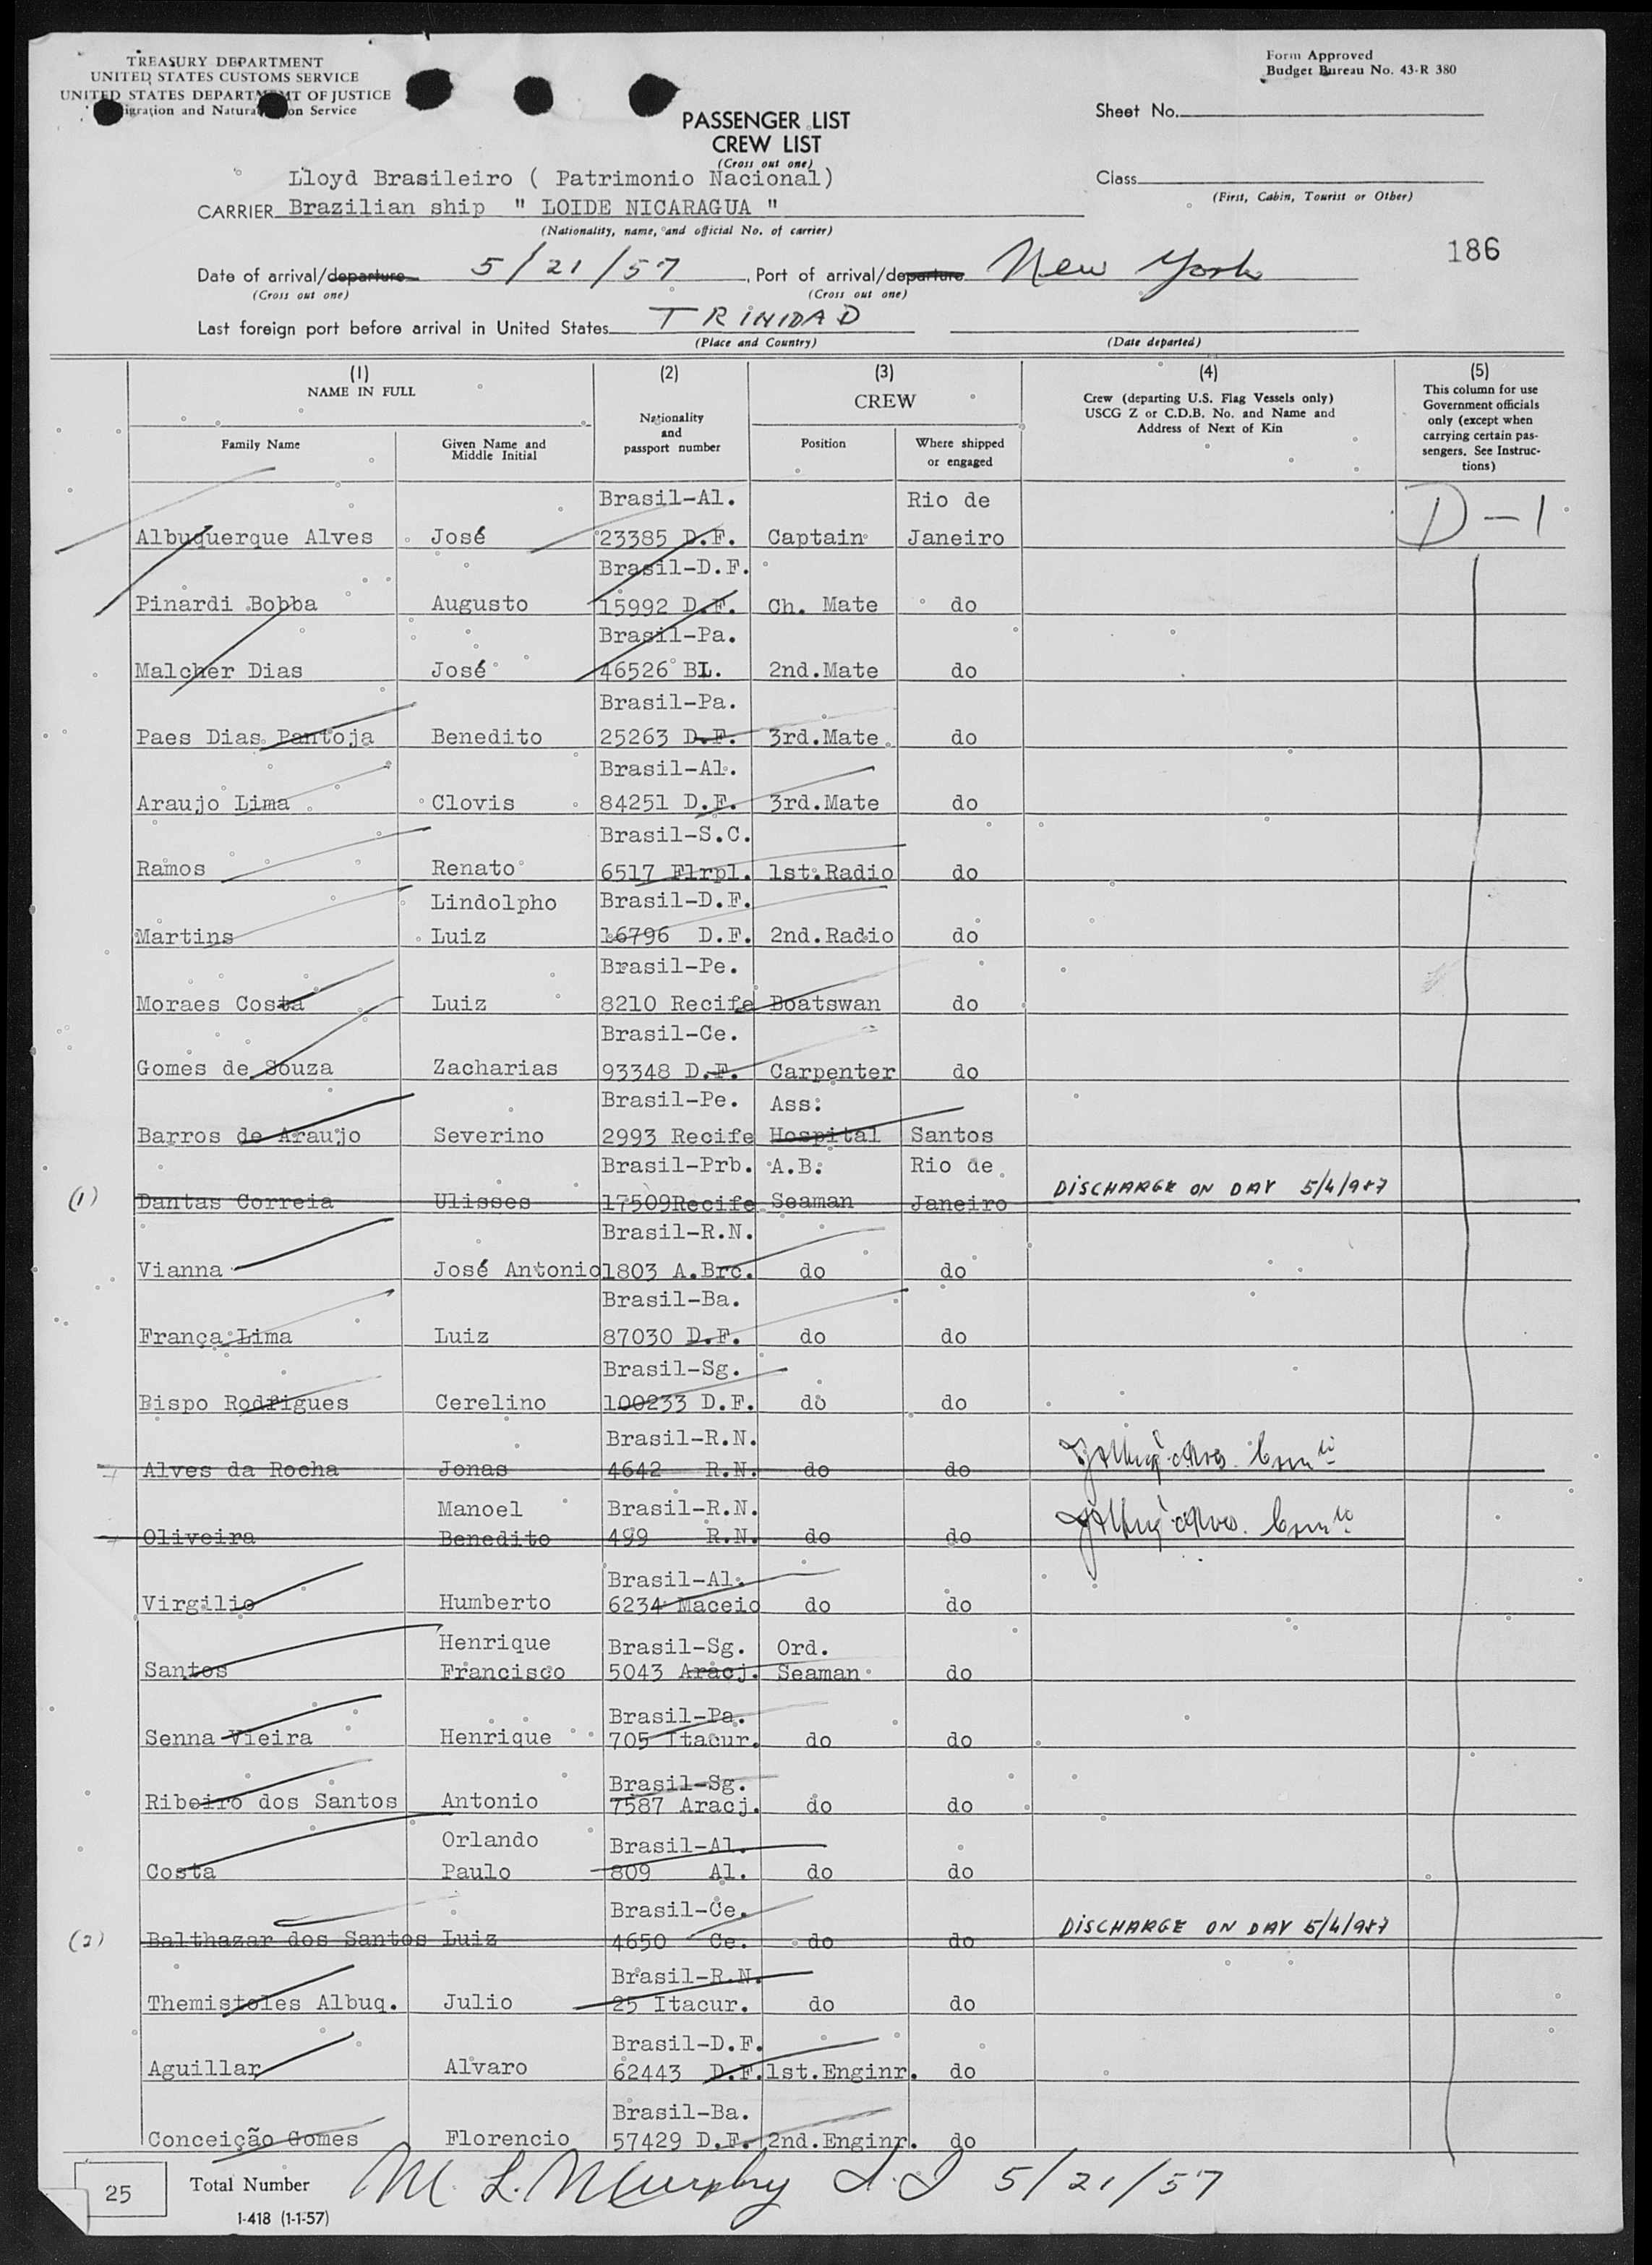 TREASURY DEPARTMENT
UNITED STATES CUSTOMS SERVICE
UNITED STATES DEPARTMENT OF JUSTICE
Immigration and Naturalization Service
Form Approved
Budget Bureau No. 43-R 380
PASSENGER LIST
CREW LIST
(Cross out one)
Sheet No.
Class
(First, Cabin, Tourist or Other)
Lloyd Brasileiro ( Patrimonio Nacional)
CARRIER Brazilian ship " LOIDE NICARAGUA "
(Nationality, name, and official No. of carrier)
186
Date of arrival/departure 5/21/57, Port of arrival/departure New York
(Cross out one) (Cross out one)
Last foreign port before arrival in United States TRINIDAD
(Place and Country) (Date departed)
(1) (2) (3) (4) (5)
NAME IN FULL
Family Name
Given Name and
Middle Initial
Nationality
and
passport number
CREW
Position
Where shipped
or engaged
Crew (departing U.S. Flag Vessels only)
USCG Z or C.D.B. No. and Name and
Address of Next of Kin
This column for use
Government officials
only (except when
carrying certain pas-
sengers. See Instruc-
tions)
Brasil-Al. Rio de
Albuquerque Alves José 23385 D.F. Captain Janeiro D-1
Brasil-D.F.
Pinardi Bobba Augusto 15992 D.F. Ch. Mate do
Brasil-Pa.
Malcher Dias José 46526 BL. 2nd.Mate do
Brasil-Pa.
Paes Dias Pantoja Benedito 25263 D.F. 3rd.Mate do
Brasil-Al.
Araujo Lima Clovis 84251 D.F. 3rd.Mate do
Brasil-S.C.
Ramos Renato 6517 Flrpl. 1st.Radio do
Lindolpho Brasil-D.F.
Martins Luiz 16796 D.F. 2nd.Radio do
Brasil-Pe.
Moraes Costa Luiz 8210 Recife Boatswan do
Brasil-Ce.
Gomes de Souza Zacharias 93348 D.F. Carpenter do
Brasil-Pe. Ass:
Barros de Araujo Severino 2993 Recife Hospital Santos
Brasil-Prb. A.B: Rio de
(1) Dantas Correia Ulisses 17509Recife Seaman Janeiro DISCHARGE ON DAY 5/4/957
Brasil-R.N.
Vianna José Antonio 1803 A.Brc. do do
Brasil-Ba.
França Lima Luiz 87030 D.F. do do
Brasil-Sg.
Bispo Rodrigues Cerelino 100233 D.F. do do
Brasil-R.N.
Alves da Rocha Jonas 4642 R.N. do do
Manoel Brasil-R.N.
Oliveira Benedito 499 R.N. do do
Brasil-Al.
Virgilio Humberto 6234 Maceio do do
Henrique Brasil-Sg. Ord.
Santos Francisco 5043 Aracj. Seaman do
Brasil-Pa.
Senna Vieira Henrique 705 Itacur. do do
Brasil-Sg.
Ribeiro dos Santos Antonio 7587 Aracj. do do
Orlando Brasil-Al.
Costa Paulo 809 Al. do do
Brasil-Ce.
(2) Balthazar dos Santos Luiz 4650 Ce. do do DISCHARGE ON DAY 5/4/957
Brasil-R.N.
Themistoles Albuq. Julio 25 Itacur. do do
Brasil-D.F.
Aguillar Alvaro 62443 D.F. 1st.Enginr. do
Brasil-Ba.
Conceição Gomes Florencio 57429 D.F. 2nd.Enginr. do
25 Total Number M. L. Murphy 5/21/57
I-418 (1-1-57)